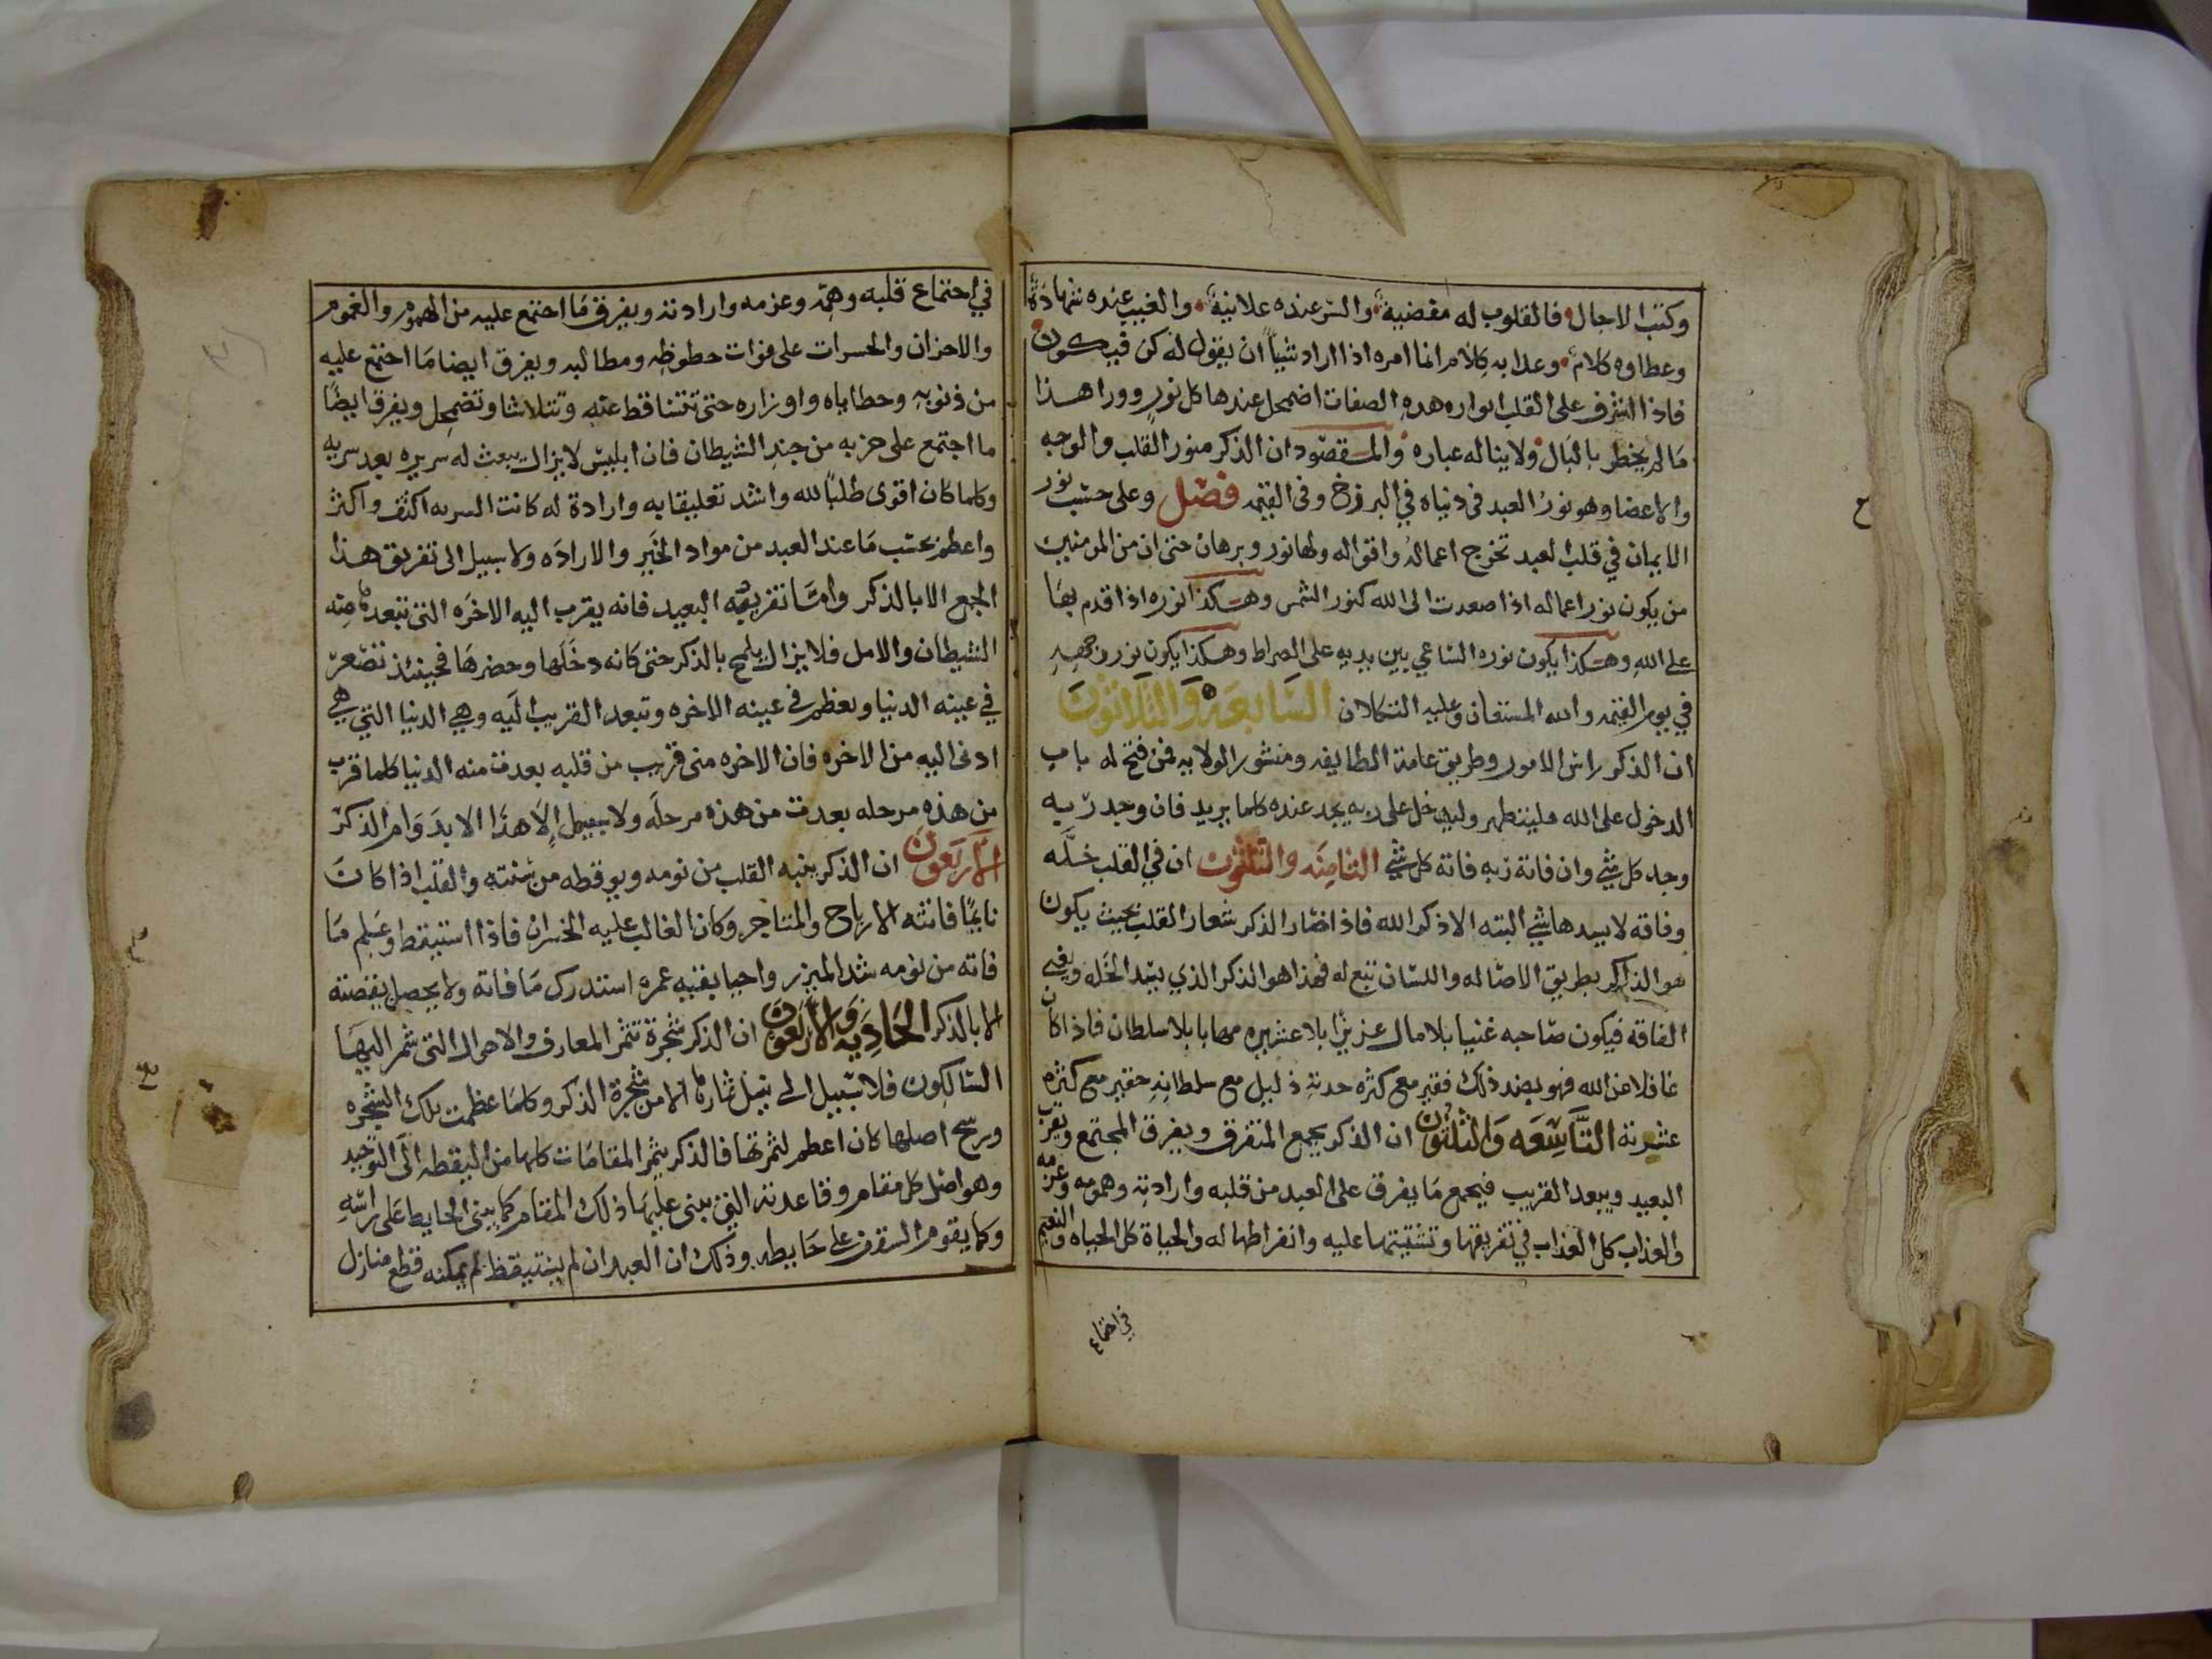 وكتب الاجال فالقلوب له مقضية والسر عنده علانية والغيب عنده شهادة
وعطاوه كلام وعذابه كلام انما امره اذا اراد شيا ان يقول له كن فيكون
فاذا اشرف على القلب انواره هده الصفات اضمحل عندها كل نور وورا هذا
ما لم يخطر بالبال ولا يناله عباره والمقصود ان الذكر منور القلب والوجه
والاعضا وهو نور العبد في دنياه في البرزخ وفى القيمه فصل وعلى حسب نور
الايمان في قلب العبد تخرج اعماله واقواله ولها نور وبرهان حتى ان من المومنين
من يكون نور اعماله اذا صعدت الى الله كنور الشمس وهكذا نوره اذا قدم بها
على الله وهكذا يكون نوره الساعي بين يديه على الصراط وهكذا يكون نور وجهه
في يوم القيمه والله المستعان وعليه التكلان السابعه والثلاثون
ان الذكر راس الامور وطريق عامة الطايفه ومنشور الولايه فمن فتح له باب
الدخول على الله فليتطهر وليدخل على ربه يجد عنده كلما يريد فان وجد ربه
وجد كل شي وان فاته ربه فاته كل شي الثامنه والثلثون ان في القلب خله
وفاقه لا يسدها شي البته الا ذكر الله فاذا صار الذكر شعار القلب بحيث يكون
هو الذاكر بطريق الاصاله واللسان تبع له فهذا هو الذكر الذي يسد الخله ويغني
الفاقه فيكون صاحبه غنيا بلا مال عزيزا بلا عشيره مهابا بلا سلطان فاذا كان
غافلا عن الله فهو بضد ذلك فقير مع كثره حدته ذليل مع سلطانه حقير مع كثره
عشيرته التاسعه والثلثون ان الذكر يجمع المتفرق ويفرق المجتمع ويقرب
البعيد ويبعد القريب فيجمع ما يفرق على العبد من قلبه وارادته وهمومه وعزمه
والعذاب كل العذاب في تفريقها وتشتيتها عليه وانفراطها له والحياة كل الحياه والنعيم
في اجتماع
في اجتماع قلبه وهمه وعزمه وارادته ويفرق ما اجتمع عليه من الهموم والغموم
والاحزان والحسرات على فوات حظوظه ومطالبه ويفرق ايضا ما اجتمع عليه
من ذنوبه وخطاياه واوزاره حتى تتساقط عنه وتتلاشا وتضمحل ويفرق ايضا
ما اجتمع على حزبه من جند الشيطان فان ابليس لا يزال يبعث له سريره بعد سريه
وكلما كان اقوى طلبا لله واشد تعليقا به وارادة له كانت السريه اكثف واكثر
واعظم بحسب ما عند العبد من مواد الخير والاراده ولا سبيل الى تفريق هذا
الجمع الا بالذكر واما تفريقه البعيد فانه يقرب اليه الاخره التى تبعدها منه
الشيطان والامل فلا يزال يلمح بالذكر حتى كانه دخلها وحضرها فحينئذ تصغر
في عينه الدنيا وتعظم في عينه الاخره وتبعد القريب اليه وهي الدنيا التي هي
ادنى اليه من الاخره فان الاخره متى قربت من قلبه بعدت منه الدنيا كلما قرب
من هذه مرحله بعدت من هذه مرحله ولا سبيل الا هذا الا بدوام الذكر
الاربعون ان الذكر ينبه القلب من نومه ويوقظه من سنته والقلب اذا كان
نايما فاتته الارباح والمتاجر وكان الغالب عليه الخسران فاذا استيقظ وعلم ما
فاته من نومه شد الميزر واحيا بقيه عمره استدرك ما فاته ولا يحصل يقضته
الا بالذكر الحاديه والاربعون ان الذكر شجرة تثمر المعارف والاحوال التى شمر اليها
السالكون فلا سبيل الى نيل ثمارها الا من شجرة الذكر وكلما عظمت تلك الشجره
ورسخ اصلها كان اعظم لثمرتها فالذكر يثمر المقامات كلها من اليقظه الى التوحيد
وهو اصل كل مقام وقاعدته التى يبنى عليها ذلك المقام كما يبنى الحايط على راسه
وكما يقوم السقف على حايطه وذلك ان العبد ان لم يستيقظ لم يمكنه قطع منازل